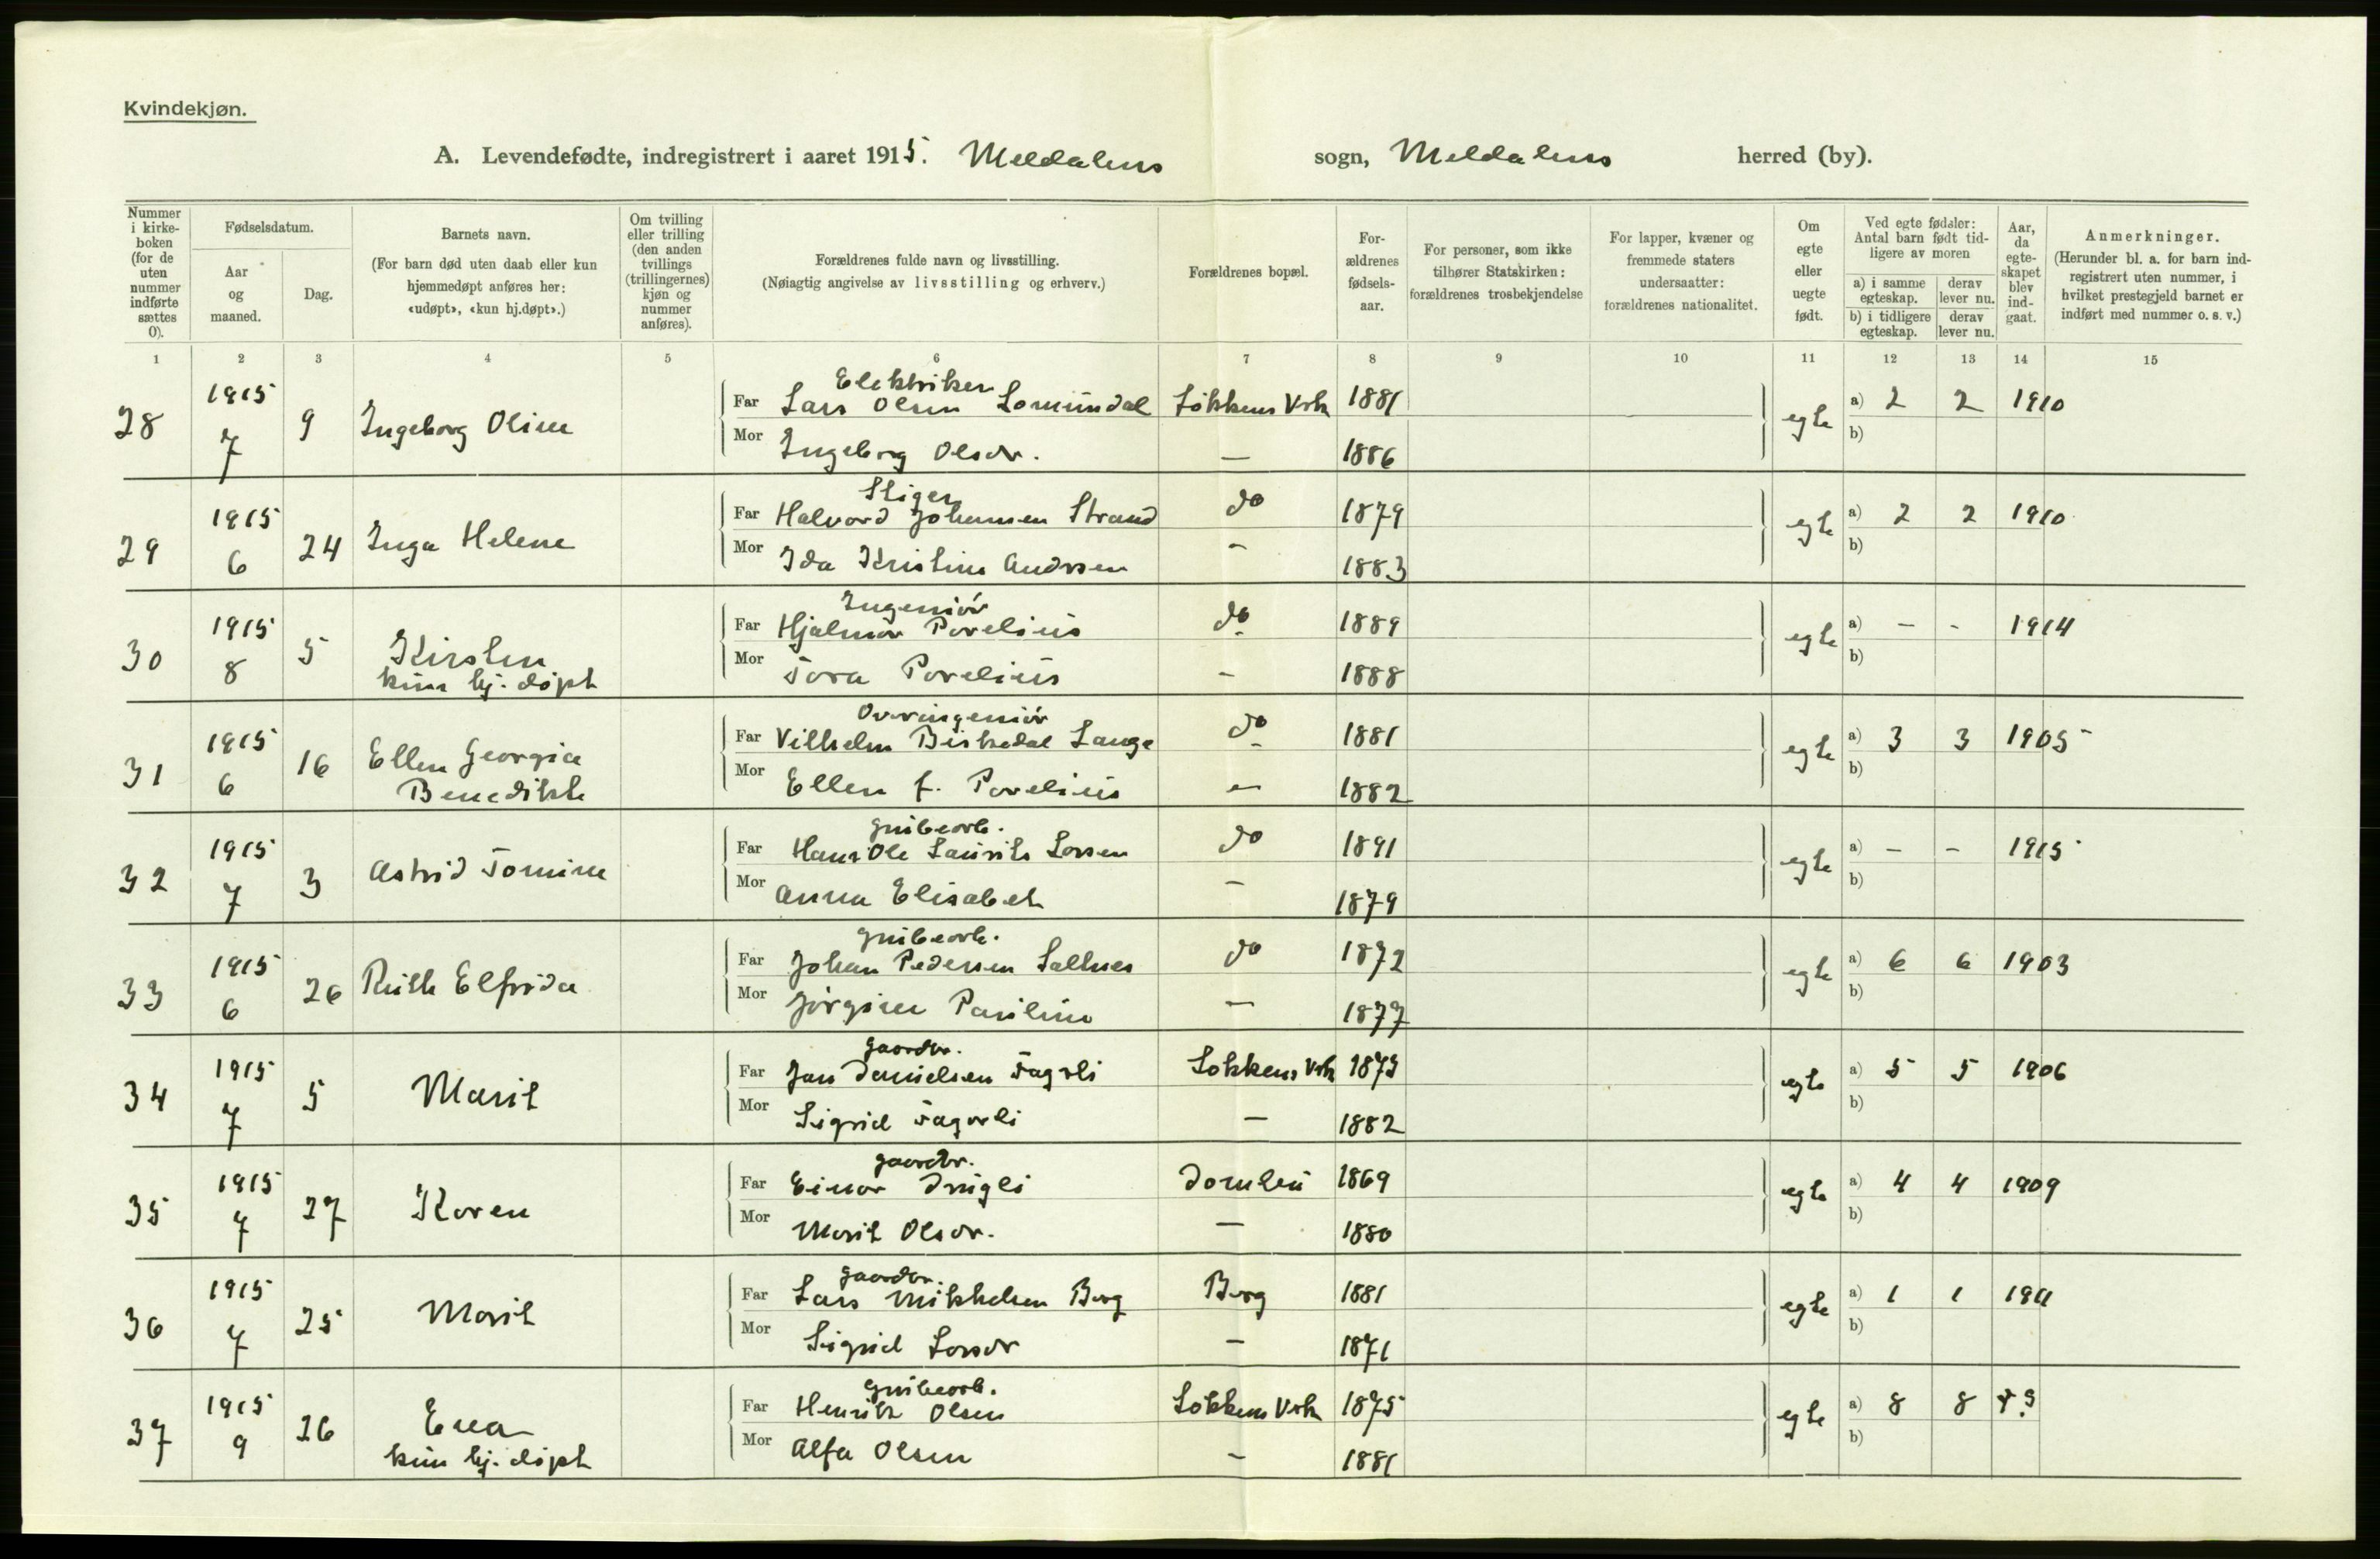 Kvindekjøn.
A. Levendefødte, indregistrert i aaret 1915. Meldalens sogn, Meldalens herred (by).
Nummer i kirke-boken (for de uten nummer indførte sættes 0).
Fødselsdatum.
Aar og maaned.
Dag.
Barnets navn.
(For barn død uten daab eller kun hjemmedøpt anføres her: «udøpt», «kun hj.døpt».)
Om tvilling eller trilling (den anden tvillings (trillingernes) kjøn og nummer anføres).
Forældrenes fulde navn og livsstilling.
(Nøiagtig angivelse av livsstilling og erhverv.)
Forældrenes bopæl.
For-ældrenes fødsels-aar.
For personer, som ikke tilhører Statskirken: forældrenes trosbekjendelse
For lapper, kvæner og fremmede staters undersaatter: forældrenes nationalitet.
Om egte eller uegte født.
Ved egte fødsler: Antal barn født tid-ligere av moren
a) i samme egteskap.
derav lever nu.
b) i tidligere egteskap.
derav lever nu.
Aar, da egte-skapet blev ind-gaat.
Anmerkninger.
(Herunder bl. a. for barn ind-registrert uten nummer, i hvilket prestegjeld barnet er indført med nummer o. s. v.)
1 2 3 4 5 6 7 8 9 10 11 12 13 14 15
Elektriker
28 1915 7 9 Ingeborg Oline Far Lars Olsen Lomundal Løkkens Vrk 1881 egte a) 2 2 1910
Mor Ingeborg Olsdr. — 1886 b)
Stiger
29 1915 6 24 Inga Helene Far Halvord Johansen Strand do 1879 egte a) 2 2 1910
Mor Ida Kristine Andrsen — 1883 b)
Ingeniør
30 1915 8 5 Kirsten Far Hjalmar Povelius do 1889 egte a) - - 1914
kun hj. døpt Mor Tora Povelius — 1888 b)
Overingeniør
31 1915 6 16 Ellen Georgia Far Vilhelm Birkedal Lange do 1881 egte a) 3 3 1905
Benedikte Mor Ellen f. Povelius — 1882 b)
Grubearb.
32 1915 7 3 Astrid Tomine Far Hans Ole Laurits Larsen do 1891 egte a) - - 1915
Mor Anna Elisabet — 1879 b)
Grubearb.
33 1915 6 26 Ruth Elfrida Far Johan Pedersen do 1872 egte a) 6 6 1903
Mor Jørgine Pauline — 1877 b)
Gaardbr.
34 1915 7 5 Marit Far Jan Danielsen Fagerli Løkkens Vrk 1873 egte a) 5 5 1906
Mor Sigrid Fagerli — 1882 b)
Gaardbr.
35 1915 7 27 Karen Far Einar 1869 egte a) 4 4 1909
Mor Marit Olsdr. — 1880 b)
Gaardbr.
36 1915 7 25 Marit Far Lars Mikkelsen Berg Berg 1881 egte a) 1 1 1911
Mor Sigrid Larsdr — 1871 b)
Grubearb.
37 1915 9 26 Eva Far Henrik Olsen Løkkens Vrk 1875 egte a) 8 8
kun hj. døpt Mor Alfa Olsen — 1881 b)